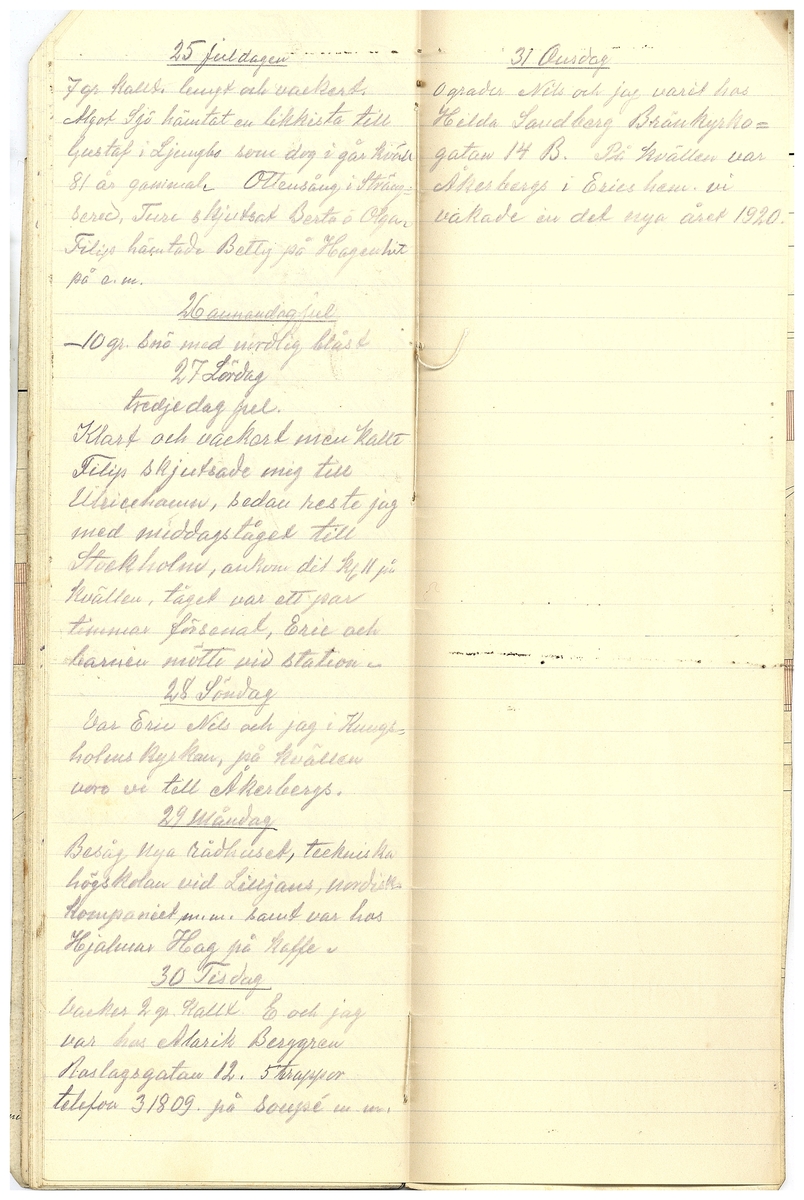 25 Juldagen
7 gr. kallt. lungt och vackert.
Algot Sjö hämtat en likkista till
Gustaf i Ljungbo som dog i går kväll
81 år gammal. Ottensång i Sträng-
sered, Ture skjutsat Berta o Olga.
Filip hämtade Betty på Hagen hit
på e.m.
26 annandag jul
-10 gr. snö med nordlig blåst
27 Lördag
tredjedag jul.
Klart och vackert men kallt
Filip skjutsade mig till
Ulricehamn, sedan reste jag
med middagståget till
Stockholm, ankom dit kl 11 på
kvällen, tåget var ett par
timmar försenat, Eric och
barnen mötte vid station.
28 Söndag
Var Eric Nils och jag i Kungs=
holms kyrkan, på kvällen
voro vi till Åkerbergs.
29 Måndag
Besåg nya rådhuset, tekniska
högskolan vid Lilljans, nordisk-
kompaniet, m.m. samt var hos
Hjalmar Hag på kaffe.
30 Tisdag
vacker 2 gr. kallt. E och jag
var hos Alarik Berggren
Roslagsgatan 12. 5 trappor
telefon 31809. på soupé m m.
31 Onsdag
0 grader Nils och jag varit hos
Hilda Sandberg Bränkyrko=
gatan 14 B. På kvällen var
Åkerbergs i Erics hem. vi
vakade in det nya året 1920.